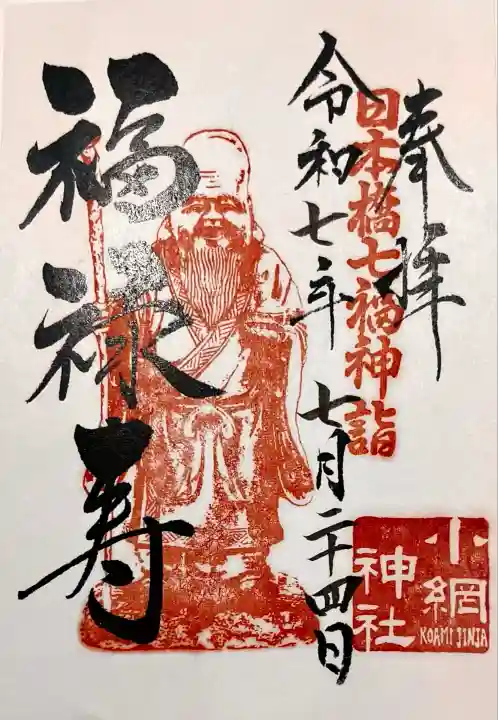 奉拝
日本橋七福神詣
令和七年 七月二十四日
福禄寿
小網
神社
KOAMI JINJA